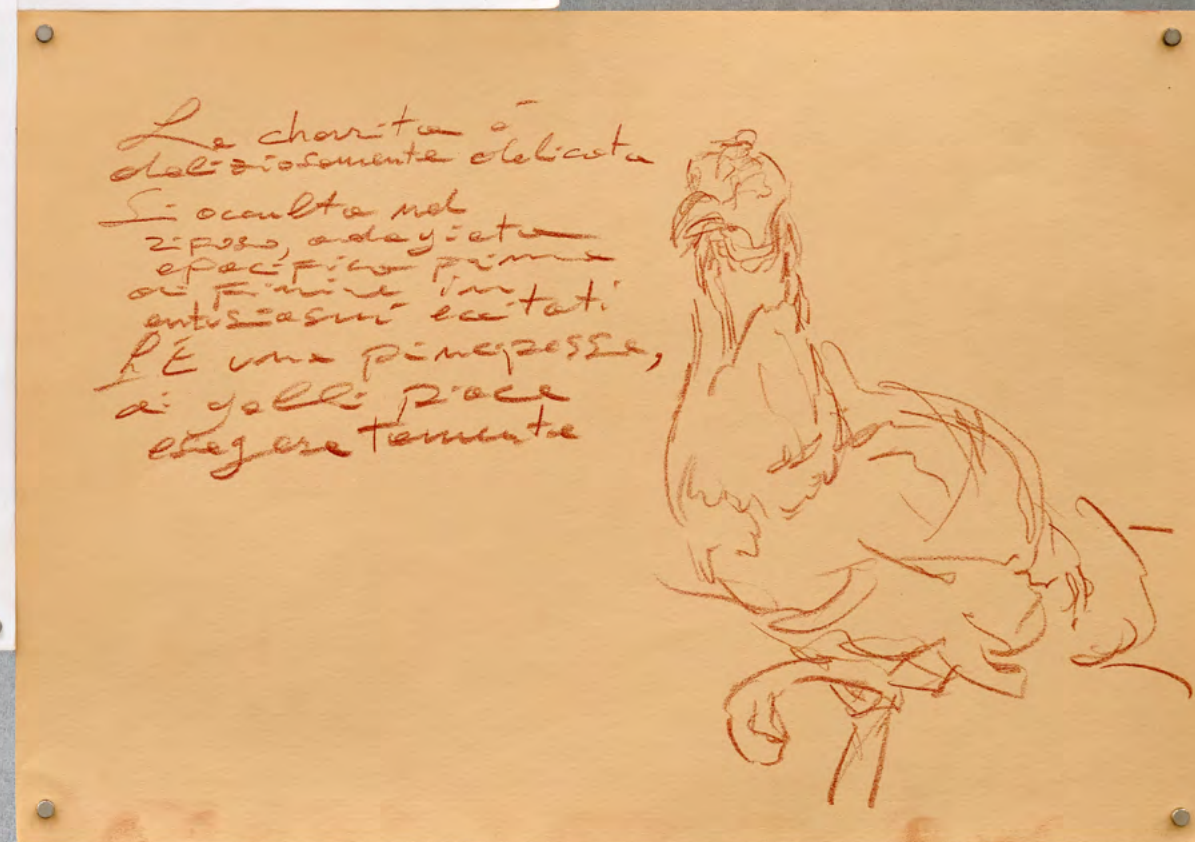 La charita è
deliziosamente delicata
Si occulta nel
riposo, adagiata
specifico prima
di finire in
entusiasmi eccitati
È una principessa,
ai galli piace
esageratamente